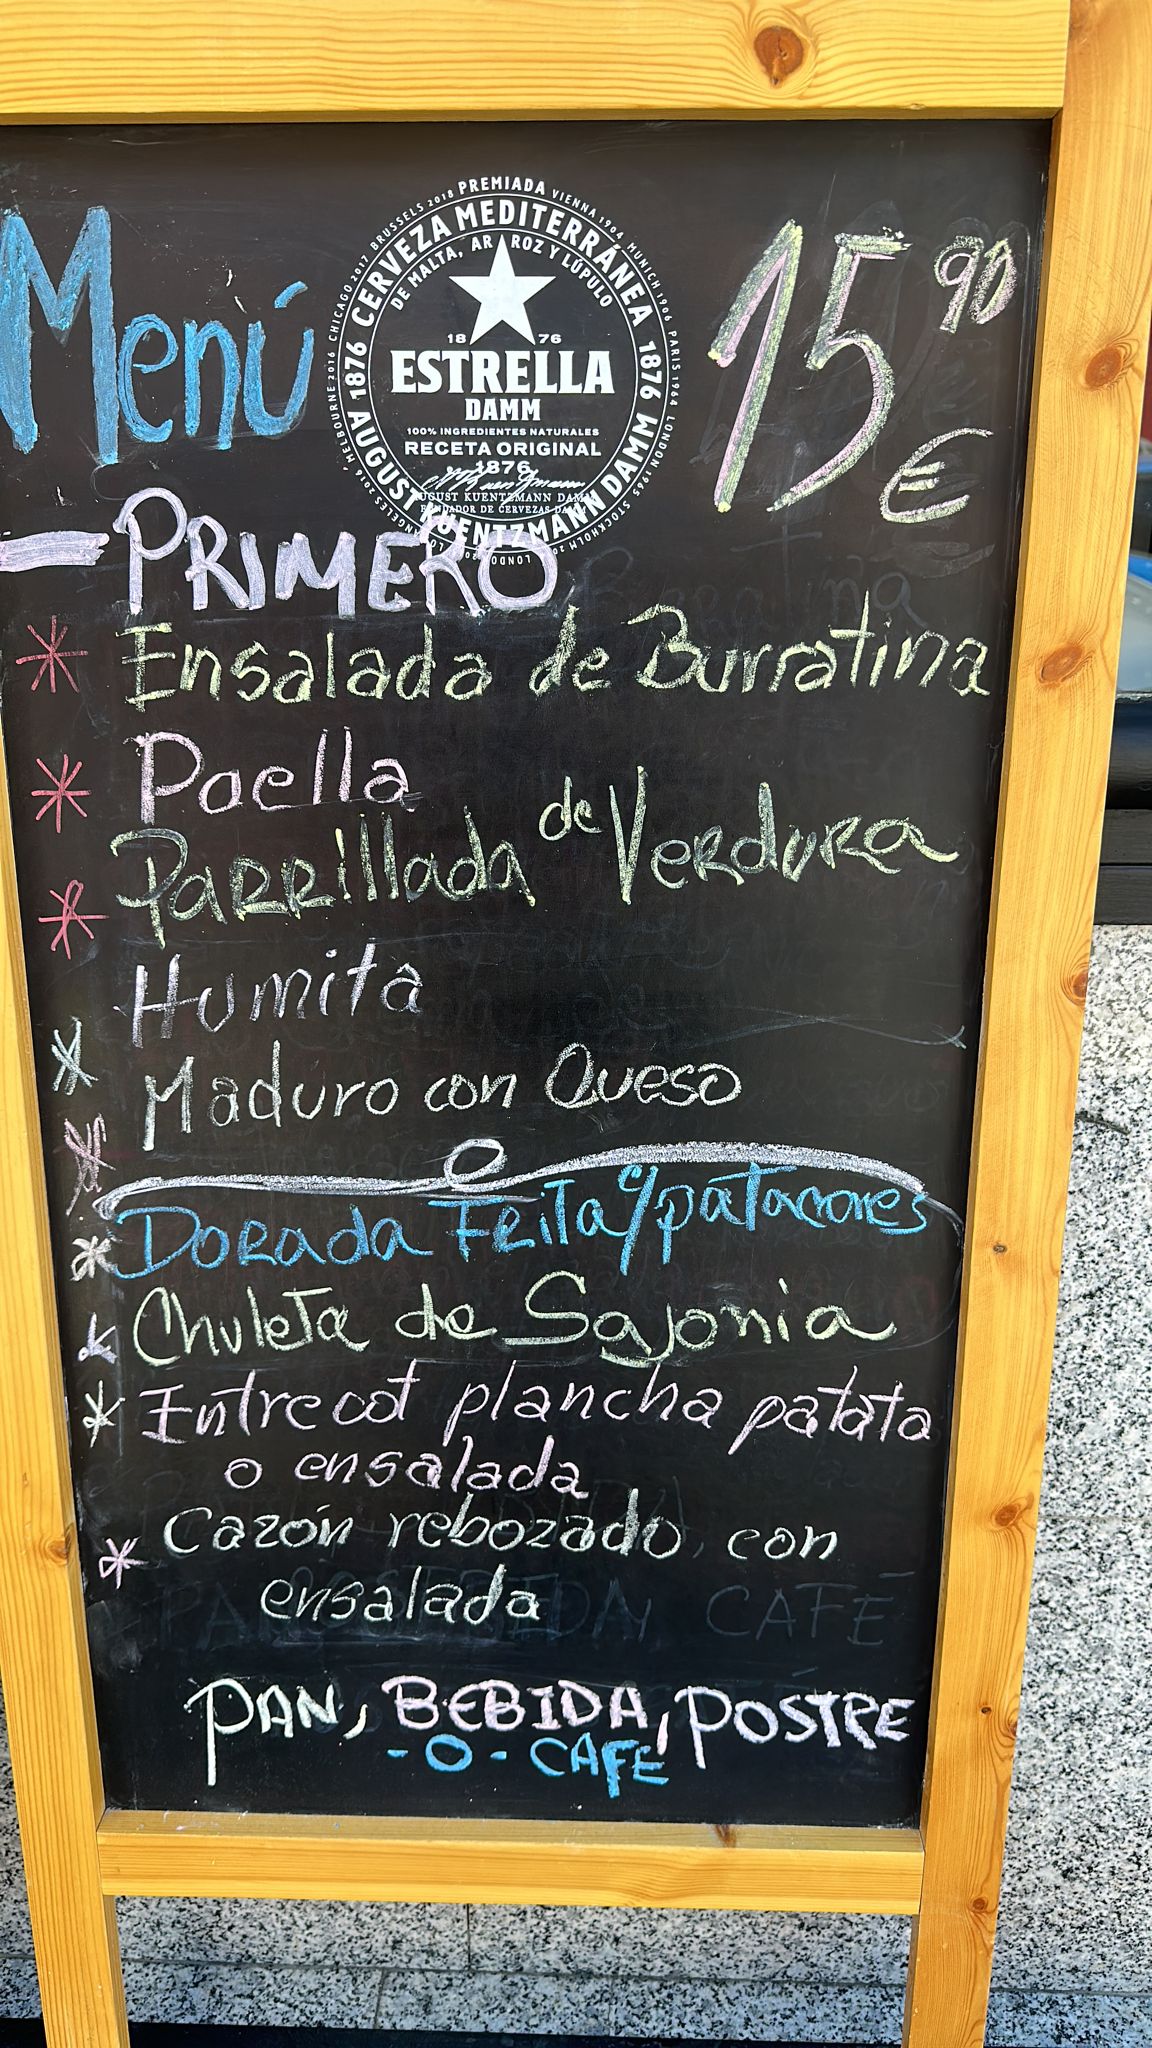 Menú
15 90 €
PREMIADA VIENNA 1904 MUNICH 1906 PARIS 1964 LONDON 1965 STOCKHOLM
MELBOURNE 2016 CHICAGO 2017 BRUSSELS 2018
1876 CERVEZA MEDITERRÁNEA 1876
DE MALTA, ARROZ Y LÚPULO
18 76
ESTRELLA
DAMM
100% INGREDIENTES NATURALES
RECETA ORIGINAL
1876
AUGUST KUENTZMANN DAMM
FUNDADOR DE CERVEZAS DAMM
AUGUST KUENTZMANN DAMM
- PRIMERO
* Ensalada de Burratina
* Paella
* Parrillada de Verdura
Humita
* Maduro con Queso
* Dorada Frita c/patacones
* Chuleta de Sajonia
* Entrecot plancha patata
o ensalada
* Cazón rebozado, con
ensalada
PAN, BEBIDA, POSTRE
- O - CAFE